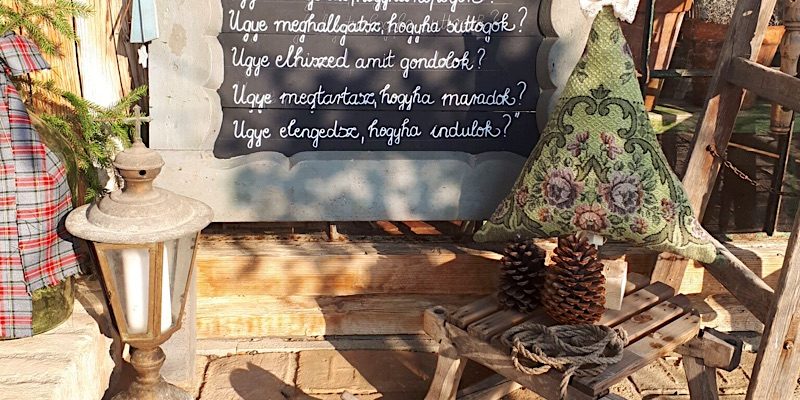 Ugye meghallgatsz, hogyha suttogok?
Ugye elhiszed amit gondolok?
Ugye megtartasz, hogyha maradok?
Ugye elengedsz, hogyha indulok?"